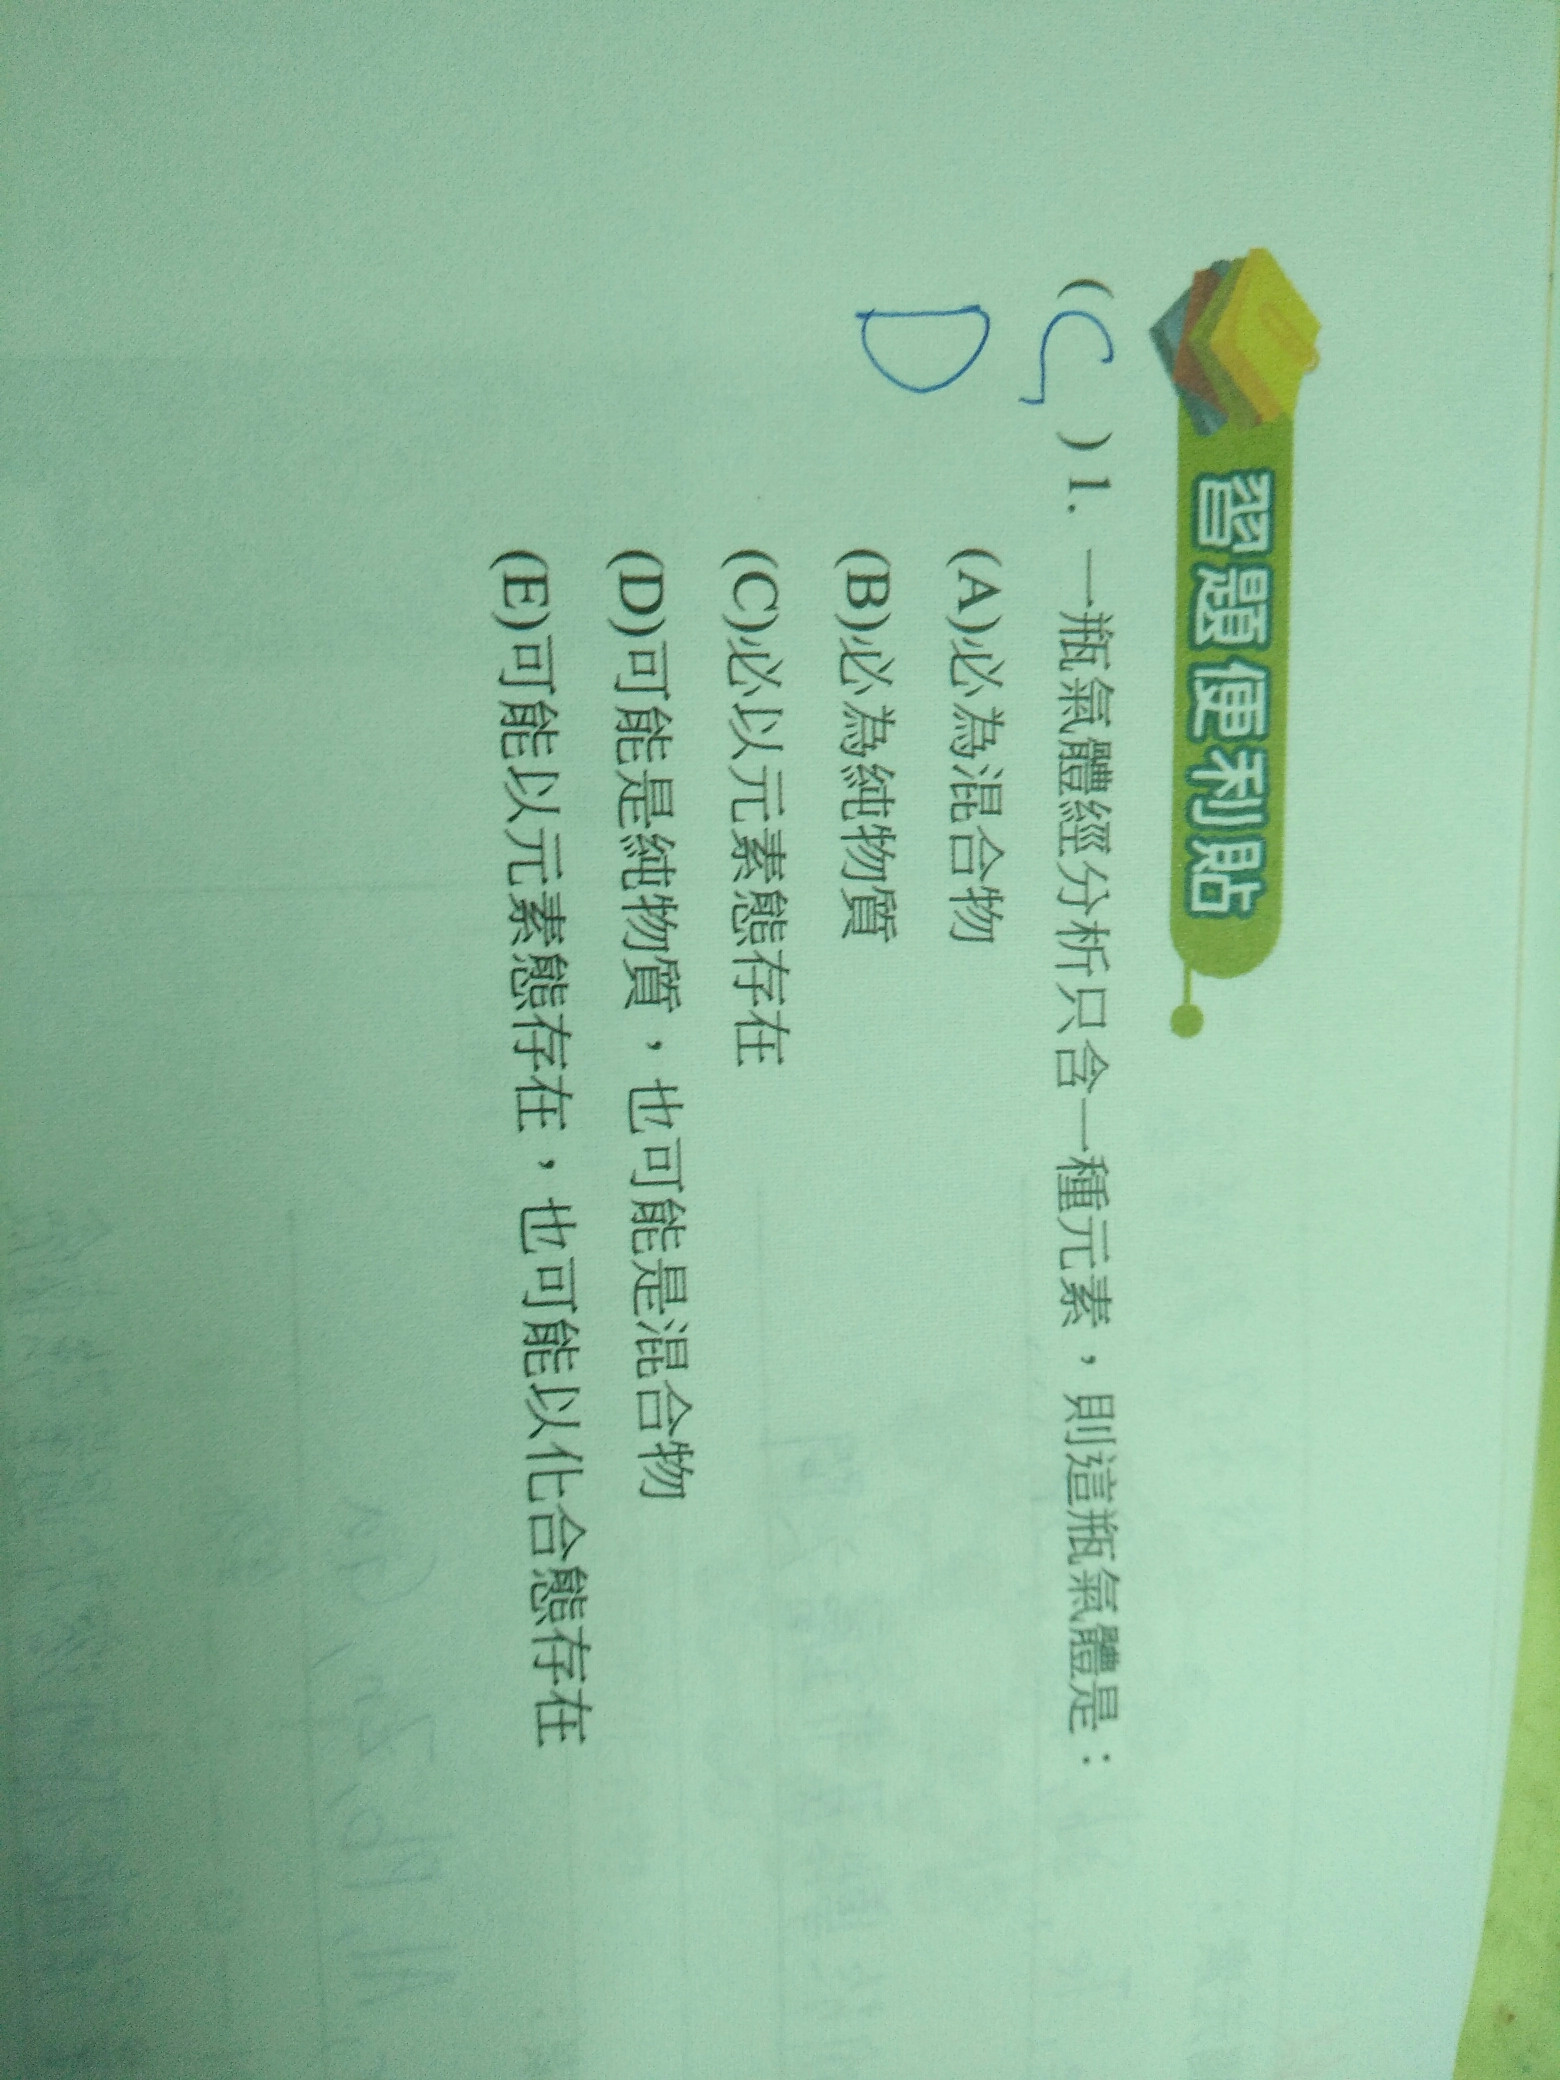 習題便利貼
( C ) 1. 一瓶氣體經分析只含一種元素，則這瓶氣體是：
D
(A)必為混合物
(B)必為純物質
(C)必以元素態存在
(D)可能是純物質，也可能是混合物
(E)可能以元素態存在，也可能以化合態存在